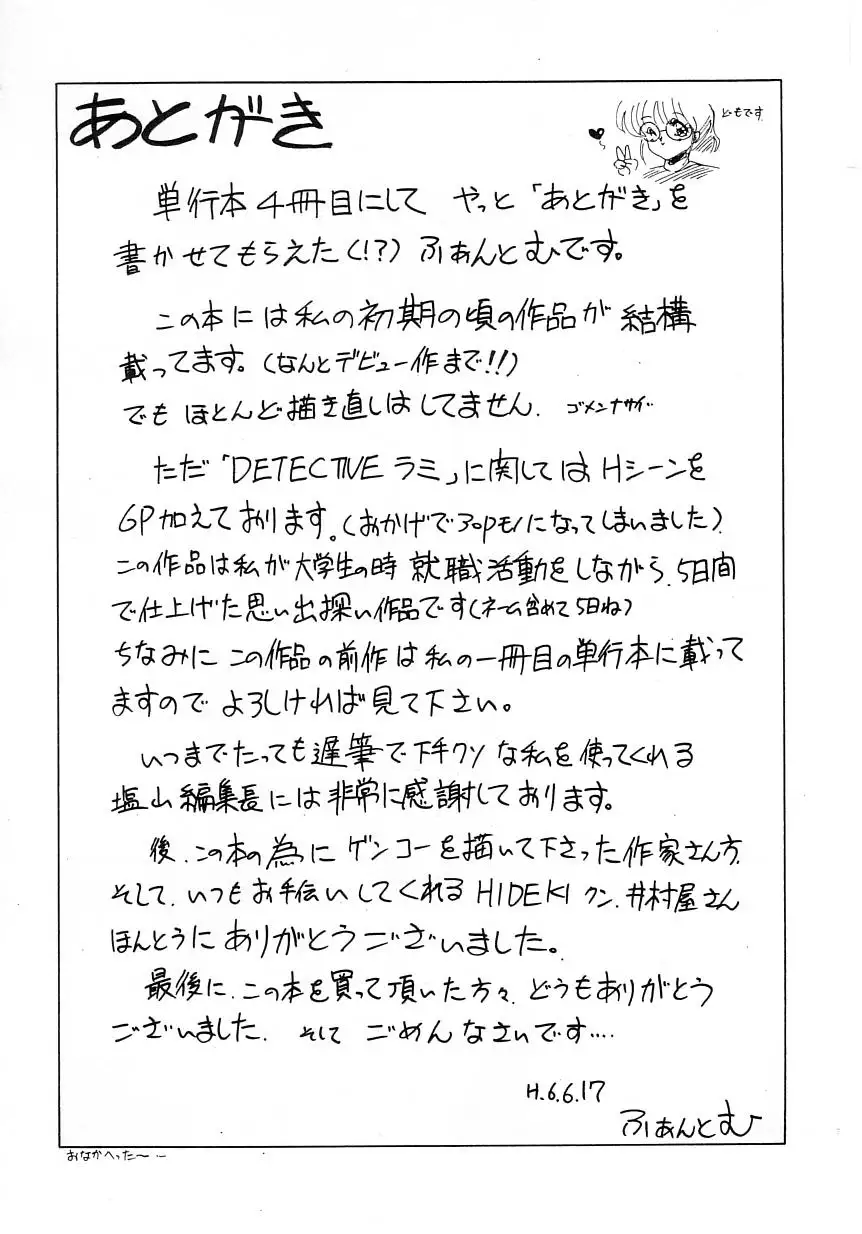 あとがき
どーもです
単行本4冊目にして やっと「あとがき」を
書かせてもらえた(!?) ふぁんとむです。
この本には私の初期の頃の作品が 結構
載ってます。(なんとデビュー作まで!!)
でも ほとんど描き直しはしてません. ゴメンナサイ…
ただ「DETECTIVE ラミ」に関しては Hシーンを
6P加えております。(おかげで30Pモノになってしまいました).
この作品は私が大学生の時 就職活動をしながら、5日間
で仕上げた思い出深い作品です(ネーム含めて5日ね)
ちなみに この作品の前作は私の一冊目の単行本に載って
ますので よろしければ見て下さい。
いつまでたっても遅筆で下手クソな私を使ってくれる
塩山編集長には非常に感謝しております。
後、この本の為に ゲンコーを描いて下さった作家さん方、
そして、いつもお手伝いしてくれるHIDEKIクン、井村屋さん
ほんとうに ありがとうございました。
最後に、この本を買って頂いた方々、どうもありがとう
ございました. そして ごめんなさいです‥‥
H.6.6.17
ふぁんとむ
おなかへった〜